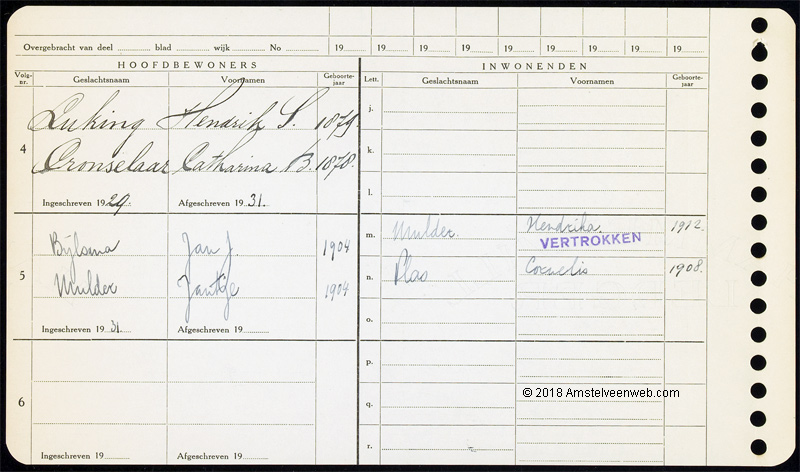 Overgebracht van deel blad wijk No 19 19 19 19 19 19 19 19 19
HOOFDBEWONERS INWONENDEN
Volg-nr. Geslachtsnaam Voornamen Geboorte-jaar Lett. Geslachtsnaam Voornamen Geboorte-jaar
j.
Luking Hendrik S. 1879.
4 k.
Cronselaar Catharina B. 1878.
l.
Ingeschreven 1929. Afgeschreven 1931.
m. Mulder. Hendrika. 1912.
VERTROKKEN
Bijlsma Jan J. 1904
5 n. Plas Cornelis 1908.
Mulder Jantje 1904
o.
Ingeschreven 1931. Afgeschreven 19
p.
6 q.
© 2018 Amstelveenweb.com
r.
Ingeschreven 19 Afgeschreven 19